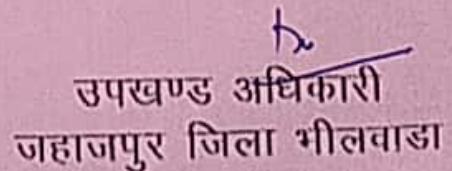 उपखण्ड अधिकारी
जहाजपुर जिला भीलवाडा